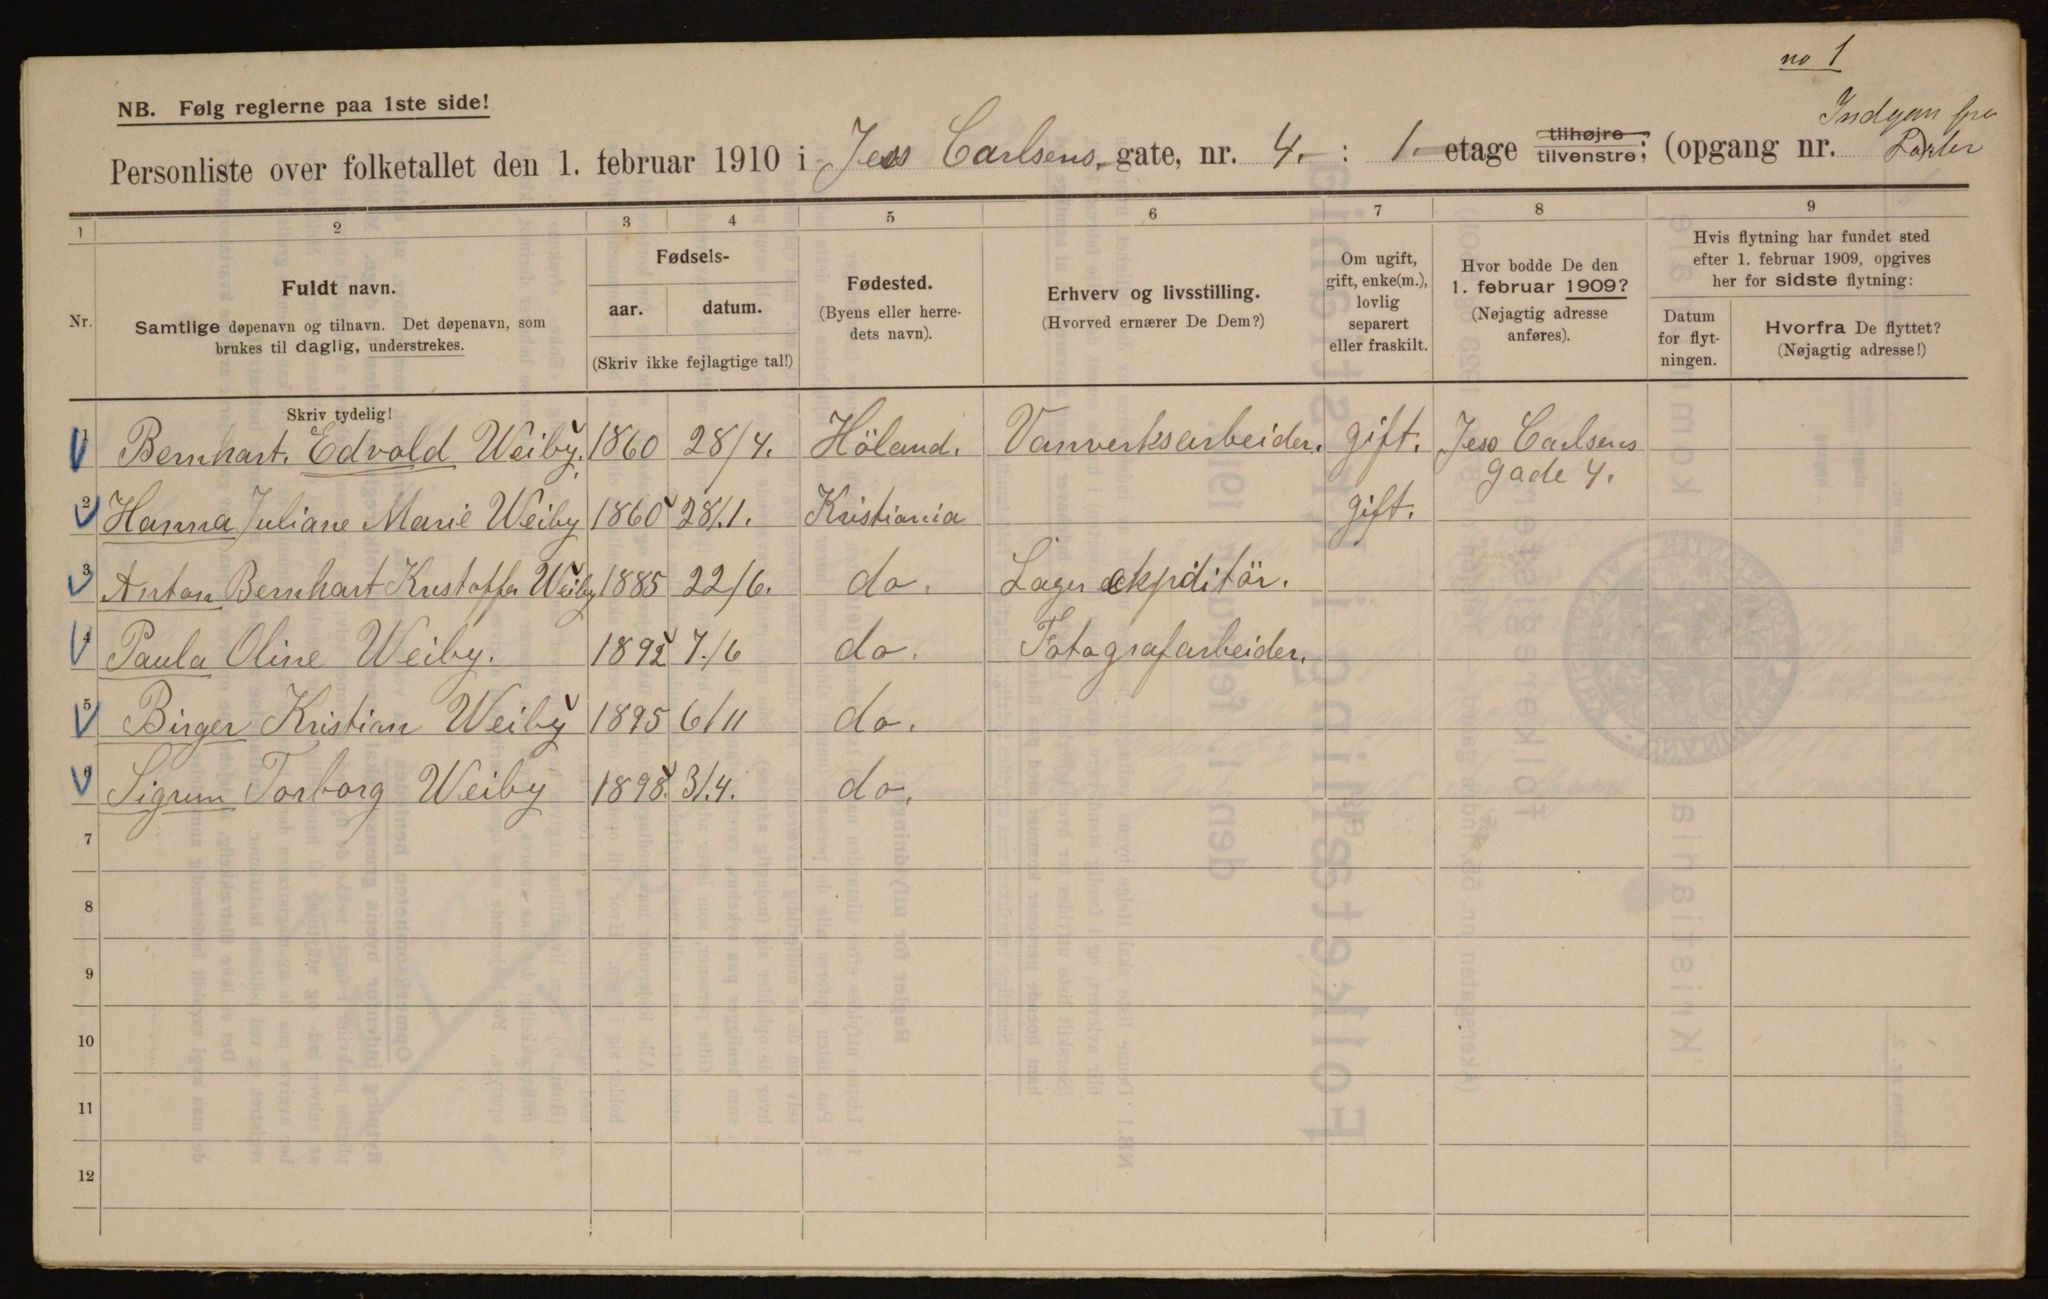 no 1
NB. Følg reglerne paa 1ste side!
Indgan fra
Personliste over folketallet den 1. februar 1910 i Jess Carlsens gate, nr. 4. : 1. etage tilhøjre tilvenstre; (opgang nr.
1 2 3 4 5 6 7 8 9
Nr.
Fuldt navn.
Samtlige døpenavn og tilnavn. Det døpenavn, som
brukes til daglig, understrekes.
Skriv tydelig!
Fødsels-
aar. datum.
(Skriv ikke fejlagtige tal!)
Fødested.
(Byens eller herre-
dets navn).
Erhverv og livsstilling.
(Hvorved ernærer De Dem?)
Om ugift,
gift, enke(m.),
lovlig
separert
eller fraskilt.
Hvor bodde De den
1. februar 1909?
(Nøjagtig adresse
anføres).
Hvis flytning har fundet sted
efter 1. februar 1909, opgives
her for sidste flytning:
Datum
for flyt-
ningen.
Hvorfra De flyttet?
(Nøjagtig adresse!)
1 Bernhart. Edvald Weiby. 1860 28/4. Höland. Vanverksarbeider. gift. Jess Carlsens
gade 4.
2 Hanna Juliane Marie Weiby 1860 28/1. Kristiania gift.
3 Anton Bernhart Kristoffer Weiby 1885 22/6. do. Lager ekpiditör.
4 Paula Oline Weiby. 1892 7/6 do. Fotografarbeider.
5 Birger Kristian Weiby 1895 6/11 do.
6 Sigrun Torborg Weiby 1898. 3/4. do.
7
8
9
10
11
12